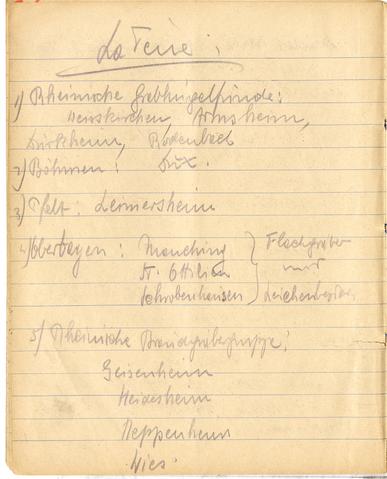 La Tène:
1) Rheinische Grabhügelfunde:
Weisskirchen, Armsheim,
Dürkheim, Rodenbach
2) Böhmen: Dux.
3) Pfalz: Leimersheim
4) Oberbayern: Manching } Flachgräber
St. Ottilien } und
Schrobenhausen } Leichenbrand
5) Rheinische Brandgräbergruppe:
Geisenheim
Heidesheim
Heppenheim
Wies